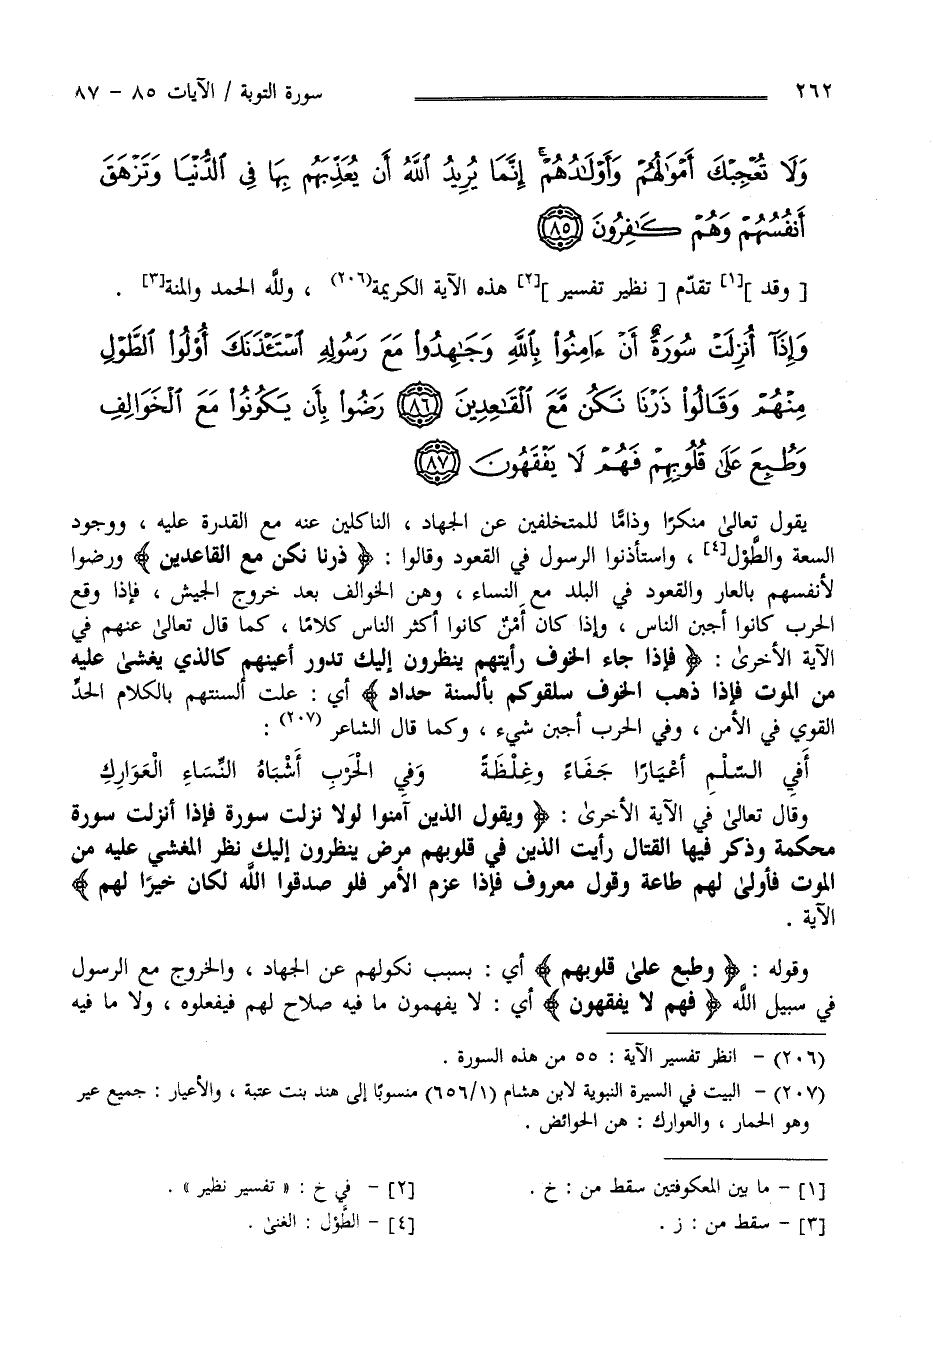 ٢٦٢ سورة التوبة / الآيات ٨٥ - ٨٧
وَلَا تُعْجِبْكَ أَمْوَٰلُهُمْ وَأَوْلَٰدُهُمْ ۚ إِنَّمَا يُرِيدُ ٱللَّهُ أَن يُعَذِّبَهُم بِهَا فِى ٱلدُّنْيَا وَتَزْهَقَ
أَنفُسُهُمْ وَهُمْ كَٰفِرُونَ ﴿٨٥﴾
[ وقد ][١] تقدّم [ نظير تفسير ][٢] هذه الآية الكريمة(٢٠٦) ، وللَّه الحمد والمنة[٣] .
وَإِذَآ أُنزِلَتْ سُورَةٌ أَنْ ءَامِنُوا۟ بِٱللَّهِ وَجَٰهِدُوا۟ مَعَ رَسُولِهِ ٱسْتَـْٔذَنَكَ أُو۟لُوا۟ ٱلطَّوْلِ
مِنْهُمْ وَقَالُوا۟ ذَرْنَا نَكُن مَّعَ ٱلْقَٰعِدِينَ ﴿٨٦﴾ رَضُوا۟ بِأَن يَكُونُوا۟ مَعَ ٱلْخَوَالِفِ
وَطُبِعَ عَلَىٰ قُلُوبِهِمْ فَهُمْ لَا يَفْقَهُونَ ﴿٨٧﴾
يقول تعالىٰ منكرًا وذامًّا للمتخلفين عن الجهاد ، الناكلين عنه مع القدرة عليه ، ووجود
السعة والطَّوْل[٤] ، واستأذنوا الرسول في القعود وقالوا : ﴿ ذرنا نكن مع القاعدين ﴾ ورضوا
لأنفسهم بالعار والقعود في البلد مع النساء ، وهن الخوالف بعد خروج الجيش ، فإذا وقع
الحرب كانوا أجبن الناس ، وإذا كان أَمْنٌ كانوا أكثر الناس كلامًا ، كما قال تعالىٰ عنهم في
الآية الأخرىٰ : ﴿ فإذا جاء الخوف رأيتهم ينظرون إليك تدور أعينهم كالذي يغشىٰ عليه
من الموت فإذا ذهب الخوف سلقوكم بألسنة حداد ﴾ أي : علت ألسنتهم بالكلام الحدِّ
القوي في الأمن ، وفي الحرب أجبن شيء ، وكما قال الشاعر (٢٠٧) :
أَفِي السّلْمِ أعْيَارًا جَفَاءً وغِلْظَةً وَفِي الْحَرْبِ أَشْبَاهُ النِّسَاءِ الْعَوَارِكِ
وقال تعالىٰ في الآية الأخرىٰ : ﴿ ويقول الذين آمنوا لولا نزلت سورة فإذا أنزلت سورة
محكمة وذكر فيها القتال رأيت الذين في قلوبهم مرض ينظرون إليك نظر المغشي عليه من
الموت فأولىٰ لهم طاعة وقول معروف فإذا عزم الأمر فلو صدقوا اللَّه لكان خيرًا لهم ﴾
الآية .
وقوله : ﴿ وطبع علىٰ قلوبهم ﴾ أي : بسبب نكولهم عن الجهاد ، والخروج مع الرسول
في سبيل اللَّه ﴿ فهم لا يفقهون ﴾ أي : لا يفهمون ما فيه صلاح لهم فيفعلوه ، ولا ما فيه
(٢٠٦) - انظر تفسير الآية : ٥٥ من هذه السورة .
(٢٠٧) - البيت في السيرة النبوية لابن هشام (٦٥٦/١) منسوبًا إلى هند بنت عتبة ، والأعيار : جميع عير
وهو الحمار ، والعوارك : هن الحوائض .
[١] - ما بين المعكوفتين سقط من : خ . [٢] - في خ : « تفسير نظير » .
[٣] - سقط من : ز . [٤] - الطَّوْل : الغنىٰ .